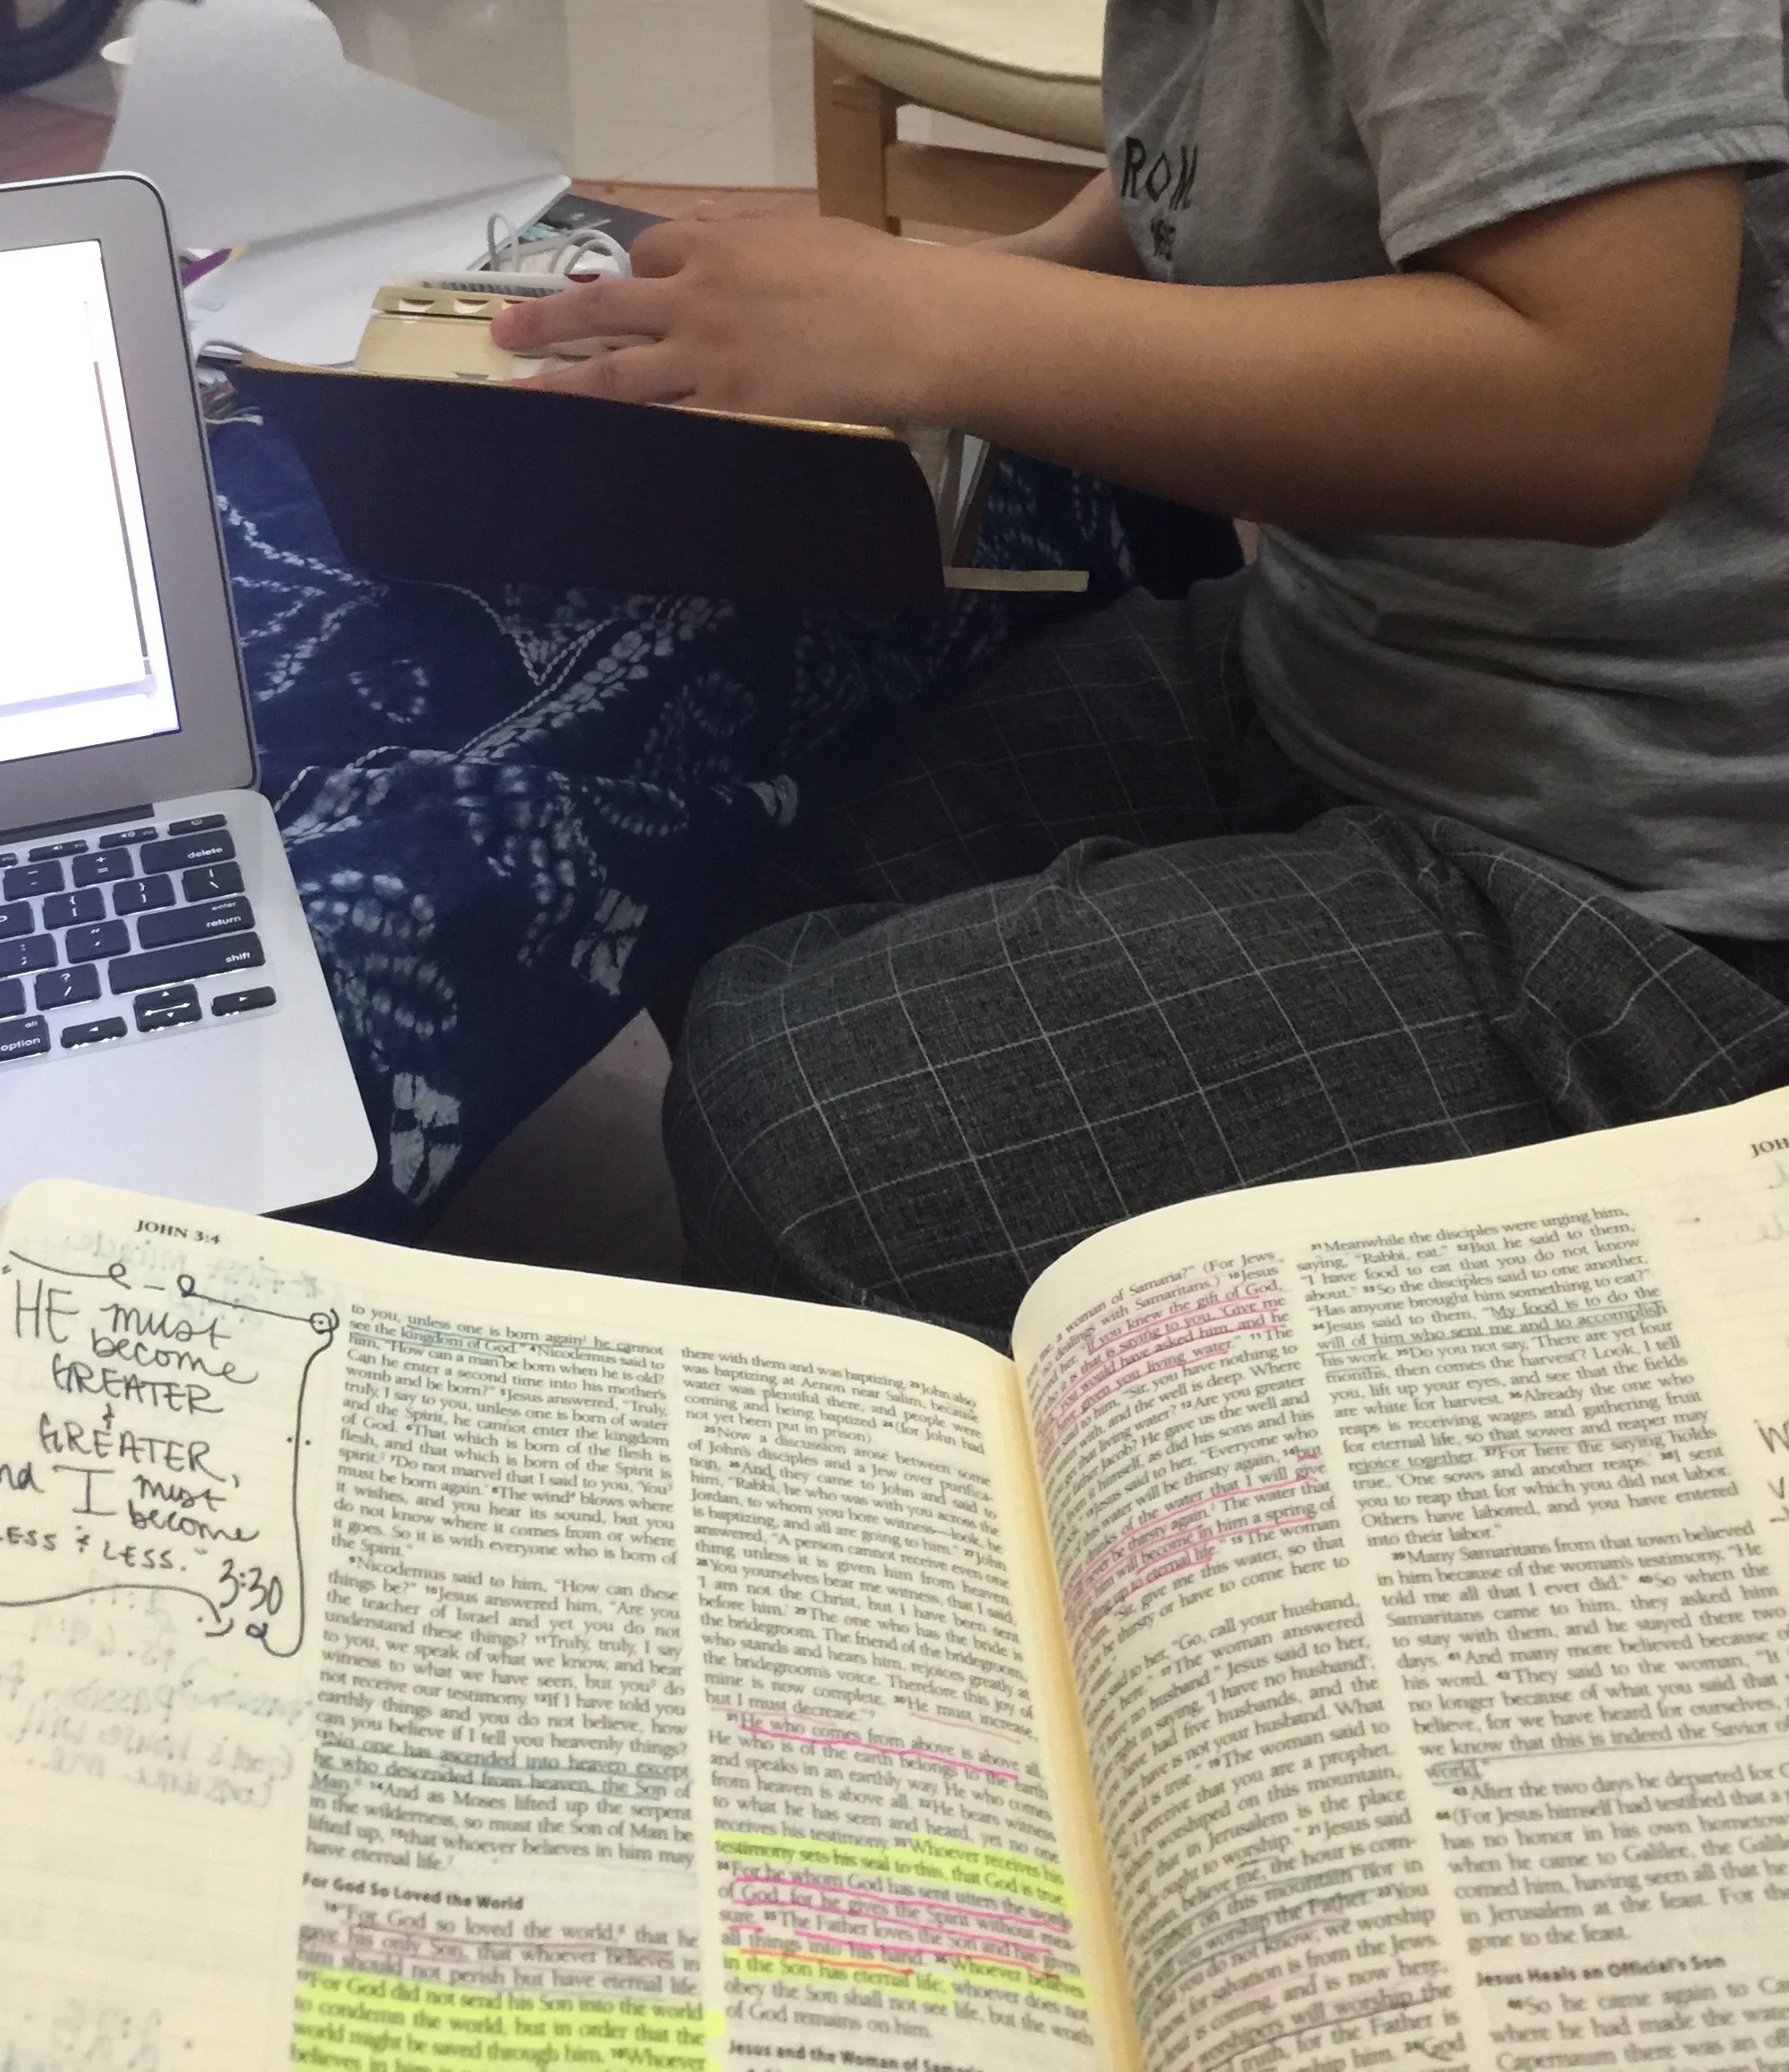 ROM
delete
enter
return
shift
alt
option
JOHN 3:4
HE must
become
GREATER
&
GREATER,
I must
become
LESS & LESS."
3:30
to you, unless one is born again he cannot
see the kingdom of God." 4Nicodemus said to
him, "How can a man be born when he is old?
Can he enter a second time into his mother's
womb and be born?" 5Jesus answered, "Truly,
truly, I say to you, unless one is born of water
and the Spirit, he cannot enter the kingdom
of God. 6That which is born of the flesh is
flesh, and that which is born of the Spirit is
spirit. 7Do not marvel that I said to you, 'You
must be born again.' 8The wind blows where
it wishes, and you hear its sound, but you
do not know where it comes from or where
it goes. So it is with everyone who is born of
the Spirit."
9Nicodemus said to him, "How can these
things be?" 10Jesus answered him, "Are you
the teacher of Israel and yet you do not
understand these things? 11Truly, truly, I say
to you, we speak of what we know, and bear
witness to what we have seen, but you do
not receive our testimony. 12If I have told you
earthly things and you do not believe, how
can you believe if I tell you heavenly things?
13No one has ascended into heaven except
he who descended from heaven, the Son of
Man. 14And as Moses lifted up the serpent
in the wilderness, so must the Son of Man be
lifted up, 15that whoever believes in him may
have eternal life.
For God So Loved the World
16"For God so loved the world, that he
gave his only Son, that whoever believes in
him should not perish but have eternal life.
17For God did not send his Son into the world
to condemn the world, but in order that the
world might be saved through him. 18Whoever
believes in him
there with them and was baptizing. 23John also
was baptizing at Aenon near Salim, because
water was plentiful there, and people were
coming and being baptized 24(for John had
not yet been put in prison).
25Now a discussion arose between some
of John's disciples and a Jew over purifica-
tion. 26And they came to John and said to
him, "Rabbi, he who was with you across the
Jordan, to whom you bore witness—look, he
is baptizing, and all are going to him." 27John
answered, "A person cannot receive even one
thing unless it is given him from heaven.
28You yourselves bear me witness, that I said,
'I am not the Christ, but I have been sent
before him.' 29The one who has the bride is
the bridegroom. The friend of the bridegroom,
who stands and hears him, rejoices greatly at
the bridegroom's voice. Therefore this joy of
mine is now complete. 30He must increase,
but I must decrease."
31He who comes from above is above all.
He who is of the earth belongs to the earth
and speaks in an earthly way. He who comes
from heaven is above all. 32He bears witness
to what he has seen and heard, yet no one
receives his testimony. 33Whoever receives his
testimony sets his seal to this, that God is true.
34For he whom God has sent utters the words
of God, for he gives the Spirit without mea-
sure. 35The Father loves the Son and has given
all things into his hand. 36Whoever believes
in the Son has eternal life; whoever does not
obey the Son shall not see life, but the wrath
of God remains on him.
Jesus and the Woman of
a woman of Samaria?" (For Jews
dealings with Samaritans.) 10Jesus
her, "If you knew the gift of God,
who it is that is saying to you, 'Give me
you would have asked him, and he
have given you living water." 11The
"Sir, you have nothing to
with, and the well is deep. Where
get that living water? 12Are you greater
father Jacob? He gave us the well and
it himself, as did his sons and his
Jesus said to her, "Everyone who
this water will be thirsty again, 14but
drinks of the water that I will give
never be thirsty again. The water that
give him will become in him a spring of
up to eternal life." 15The woman
"Sir, give me this water, so that
not be thirsty or have to come here to
said to her, "Go, call your husband,
here." 17The woman answered
no husband." Jesus said to her,
right in saying, 'I have no husband';
have had five husbands, and the
have is not your husband. What
said is true." 19The woman said to
I perceive that you are a prophet.
worshiped on this mountain,
that in Jerusalem is the place
ought to worship." 21Jesus said
believe me, the hour is com-
on this mountain nor in
you worship the Father. 22You
you do not know; we worship
for salvation is from the Jews.
is coming, and is now here,
worshipers will worship the
truth, for the Father is
him. 24God
31Meanwhile the disciples were urging him,
saying, "Rabbi, eat." 32But he said to them,
"I have food to eat that you do not know
about." 33So the disciples said to one another,
"Has anyone brought him something to eat?"
34Jesus said to them, "My food is to do the
will of him who sent me and to accomplish
his work. 35Do you not say, 'There are yet four
months, then comes the harvest'? Look, I tell
you, lift up your eyes, and see that the fields
are white for harvest. 36Already the one who
reaps is receiving wages and gathering fruit
for eternal life, so that sower and reaper may
rejoice together. 37For here the saying holds
true, 'One sows and another reaps.' 38I sent
you to reap that for which you did not labor.
Others have labored, and you have entered
into their labor."
39Many Samaritans from that town believed
in him because of the woman's testimony, "He
told me all that I ever did." 40So when the
Samaritans came to him, they asked him
to stay with them, and he stayed there two
days. 41And many more believed because of
his word. 42They said to the woman, "It
no longer because of what you said that
believe, for we have heard for ourselves,
we know that this is indeed the Savior of
world."
43After the two days he departed for
44(For Jesus himself had testified that a
has no honor in his own hometown
when he came to Galilee, the
comed him, having seen all that he
in Jerusalem at the feast. For
gone to the feast.
Jesus Heals an Official's Son
46So he came again to
where he had made the
Capernaum there was an